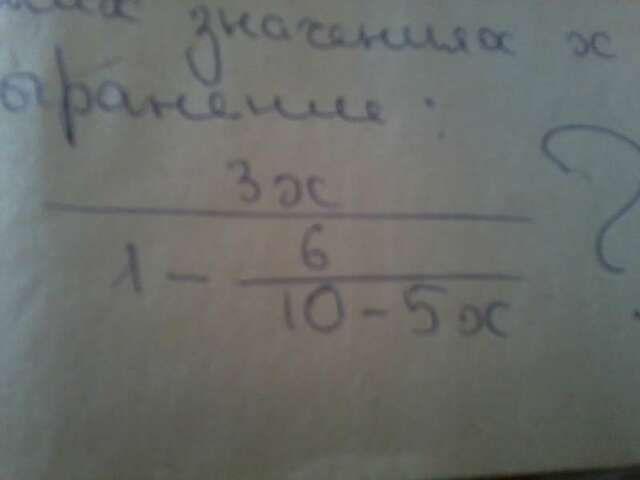 значениях x
выражение:
3x
1 - 6
10 - 5x
?